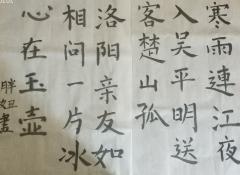 寒雨連江夜
入吴平明送
客楚山孤
洛阳亲友如
相问一片冰
心在玉壶
胖妞書